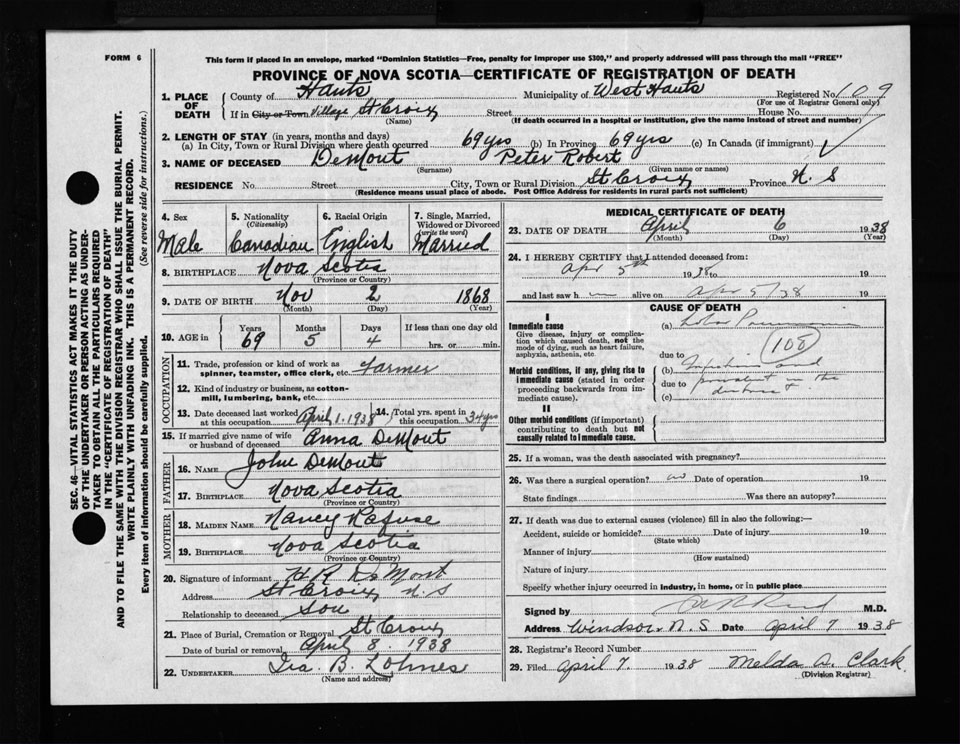 FORM 6
This form if placed in an envelope, marked "Dominion Statistics—Free, penalty for improper use $300," and properly addressed will pass through the mail "FREE"
PROVINCE OF NOVA SCOTIA—CERTIFICATE OF REGISTRATION OF DEATH
1. PLACE OF DEATH
County of Hants Municipality of West Hants Registered No. 109
(For use of Registrar General only)
If in City or Town Village St Croix Street House No.
(Name) (If death occurred in a hospital or institution, give the name instead of street and number)
2. LENGTH OF STAY (in years, months and days)
(a) In City, Town or Rural Division where death occurred 69 yrs (b) In Province 69 yrs (c) In Canada (if immigrant)
3. NAME OF DECEASED DeMont Peter Robert
(Surname) (Given name or names)
RESIDENCE No. Street City, Town or Rural Division St Croix Province N. S
(Residence means usual place of abode. Post Office Address for residents in rural parts not sufficient)
4. Sex Male
5. Nationality (Citizenship) Canadian
6. Racial Origin English
7. Single, Married, Widowed or Divorced (write the word) Married
8. BIRTHPLACE Nova Scotia
(Province or Country)
9. DATE OF BIRTH Nov 2 1868
(Month) (Day) (Year)
10. AGE in Years 69 Months 5 Days 4 If less than one day old
hrs. or min.
11. Trade, profession or kind of work as spinner, teamster, office clerk, etc. Farmer
12. Kind of industry or business, as cotton-mill, lumbering, bank, etc.
13. Date deceased last worked at this occupation April 1. 1938
14. Total yrs. spent in this occupation 34 yrs
15. If married give name of wife or husband of deceased Anna DeMont
FATHER
16. NAME John DeMont
17. BIRTHPLACE Nova Scotia
(Province or Country)
MOTHER
18. MAIDEN NAME Nancy Rafuse
19. BIRTHPLACE Nova Scotia
(Province or Country)
20. Signature of informant H R DeMont
Address St Croix, N. S
Relationship to deceased Son
21. Place of Burial, Cremation or Removal St Croix
Date of burial or removal April 8. 1938
22. UNDERTAKER Ira. B. Lohnes
(Name and address)
MEDICAL CERTIFICATE OF DEATH
23. DATE OF DEATH April 6 1938
(Month) (Day) (Year)
24. I HEREBY CERTIFY that I attended deceased from:
Apr 5th 1938 to 19
and last saw h m alive on Apr 5/38 19
CAUSE OF DEATH
I
Immediate cause
Give disease, injury or complication which caused death, not the mode of dying, such as heart failure, asphyxia, asthenia, etc.
(a) Lobar Pneumonia
108
due to
Morbid conditions, if any, giving rise to immediate cause (stated in order proceeding backwards from immediate cause).
(b) Infection and
due to prevalent in the
(c) district
II
Other morbid conditions (if important) contributing to death but not causally related to immediate cause.
25. If a woman, was the death associated with pregnancy?
26. Was there a surgical operation? no Date of operation 19
State findings Was there an autopsy?
27. If death was due to external causes (violence) fill in also the following:—
Accident, suicide or homicide? Date of injury 19
(State which)
Manner of injury
(How sustained)
Nature of injury
Specify whether injury occurred in industry, in home, or in public place
Signed by M.D.
Address Windsor N. S Date April 7 1938
28. Registrar's Record Number
29. Filed April 7 1938 Melda A. Clark
(Division Registrar)
SEC. 46—VITAL STATISTICS ACT MAKES IT THE DUTY
OF THE UNDERTAKER OR PERSON ACTING AS UNDER-
TAKER TO OBTAIN ALL THE PARTICULARS REQUIRED
IN THE "CERTIFICATE OF REGISTRATION OF DEATH"
AND TO FILE THE SAME WITH THE DIVISION REGISTRAR WHO SHALL ISSUE THE BURIAL PERMIT.
WRITE PLAINLY WITH UNFADING INK. THIS IS A PERMANENT RECORD.
Every item of information should be carefully supplied. (See reverse side for instructions.)